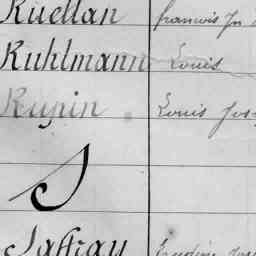 Ruellan francois Jn
Kuhlmann Louis
Rupin Louis Jos
S
Jaffray